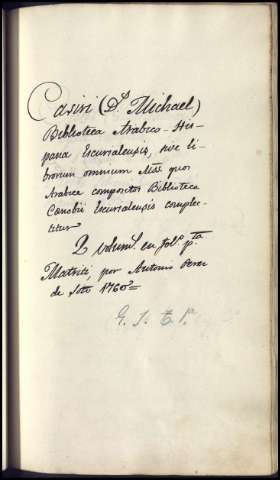 Casiri (Dn. Michael)
Biblioteca Arabico-His-
pana Escurialensis, sive li-
brorum omnium Mss. quos
Arabice compositos Biblioteca
Cœnobii Escurialensis complec-
titur
2 volum.s en fol.o pta
Matriti, por Antonio Perez
de Soto 1760=